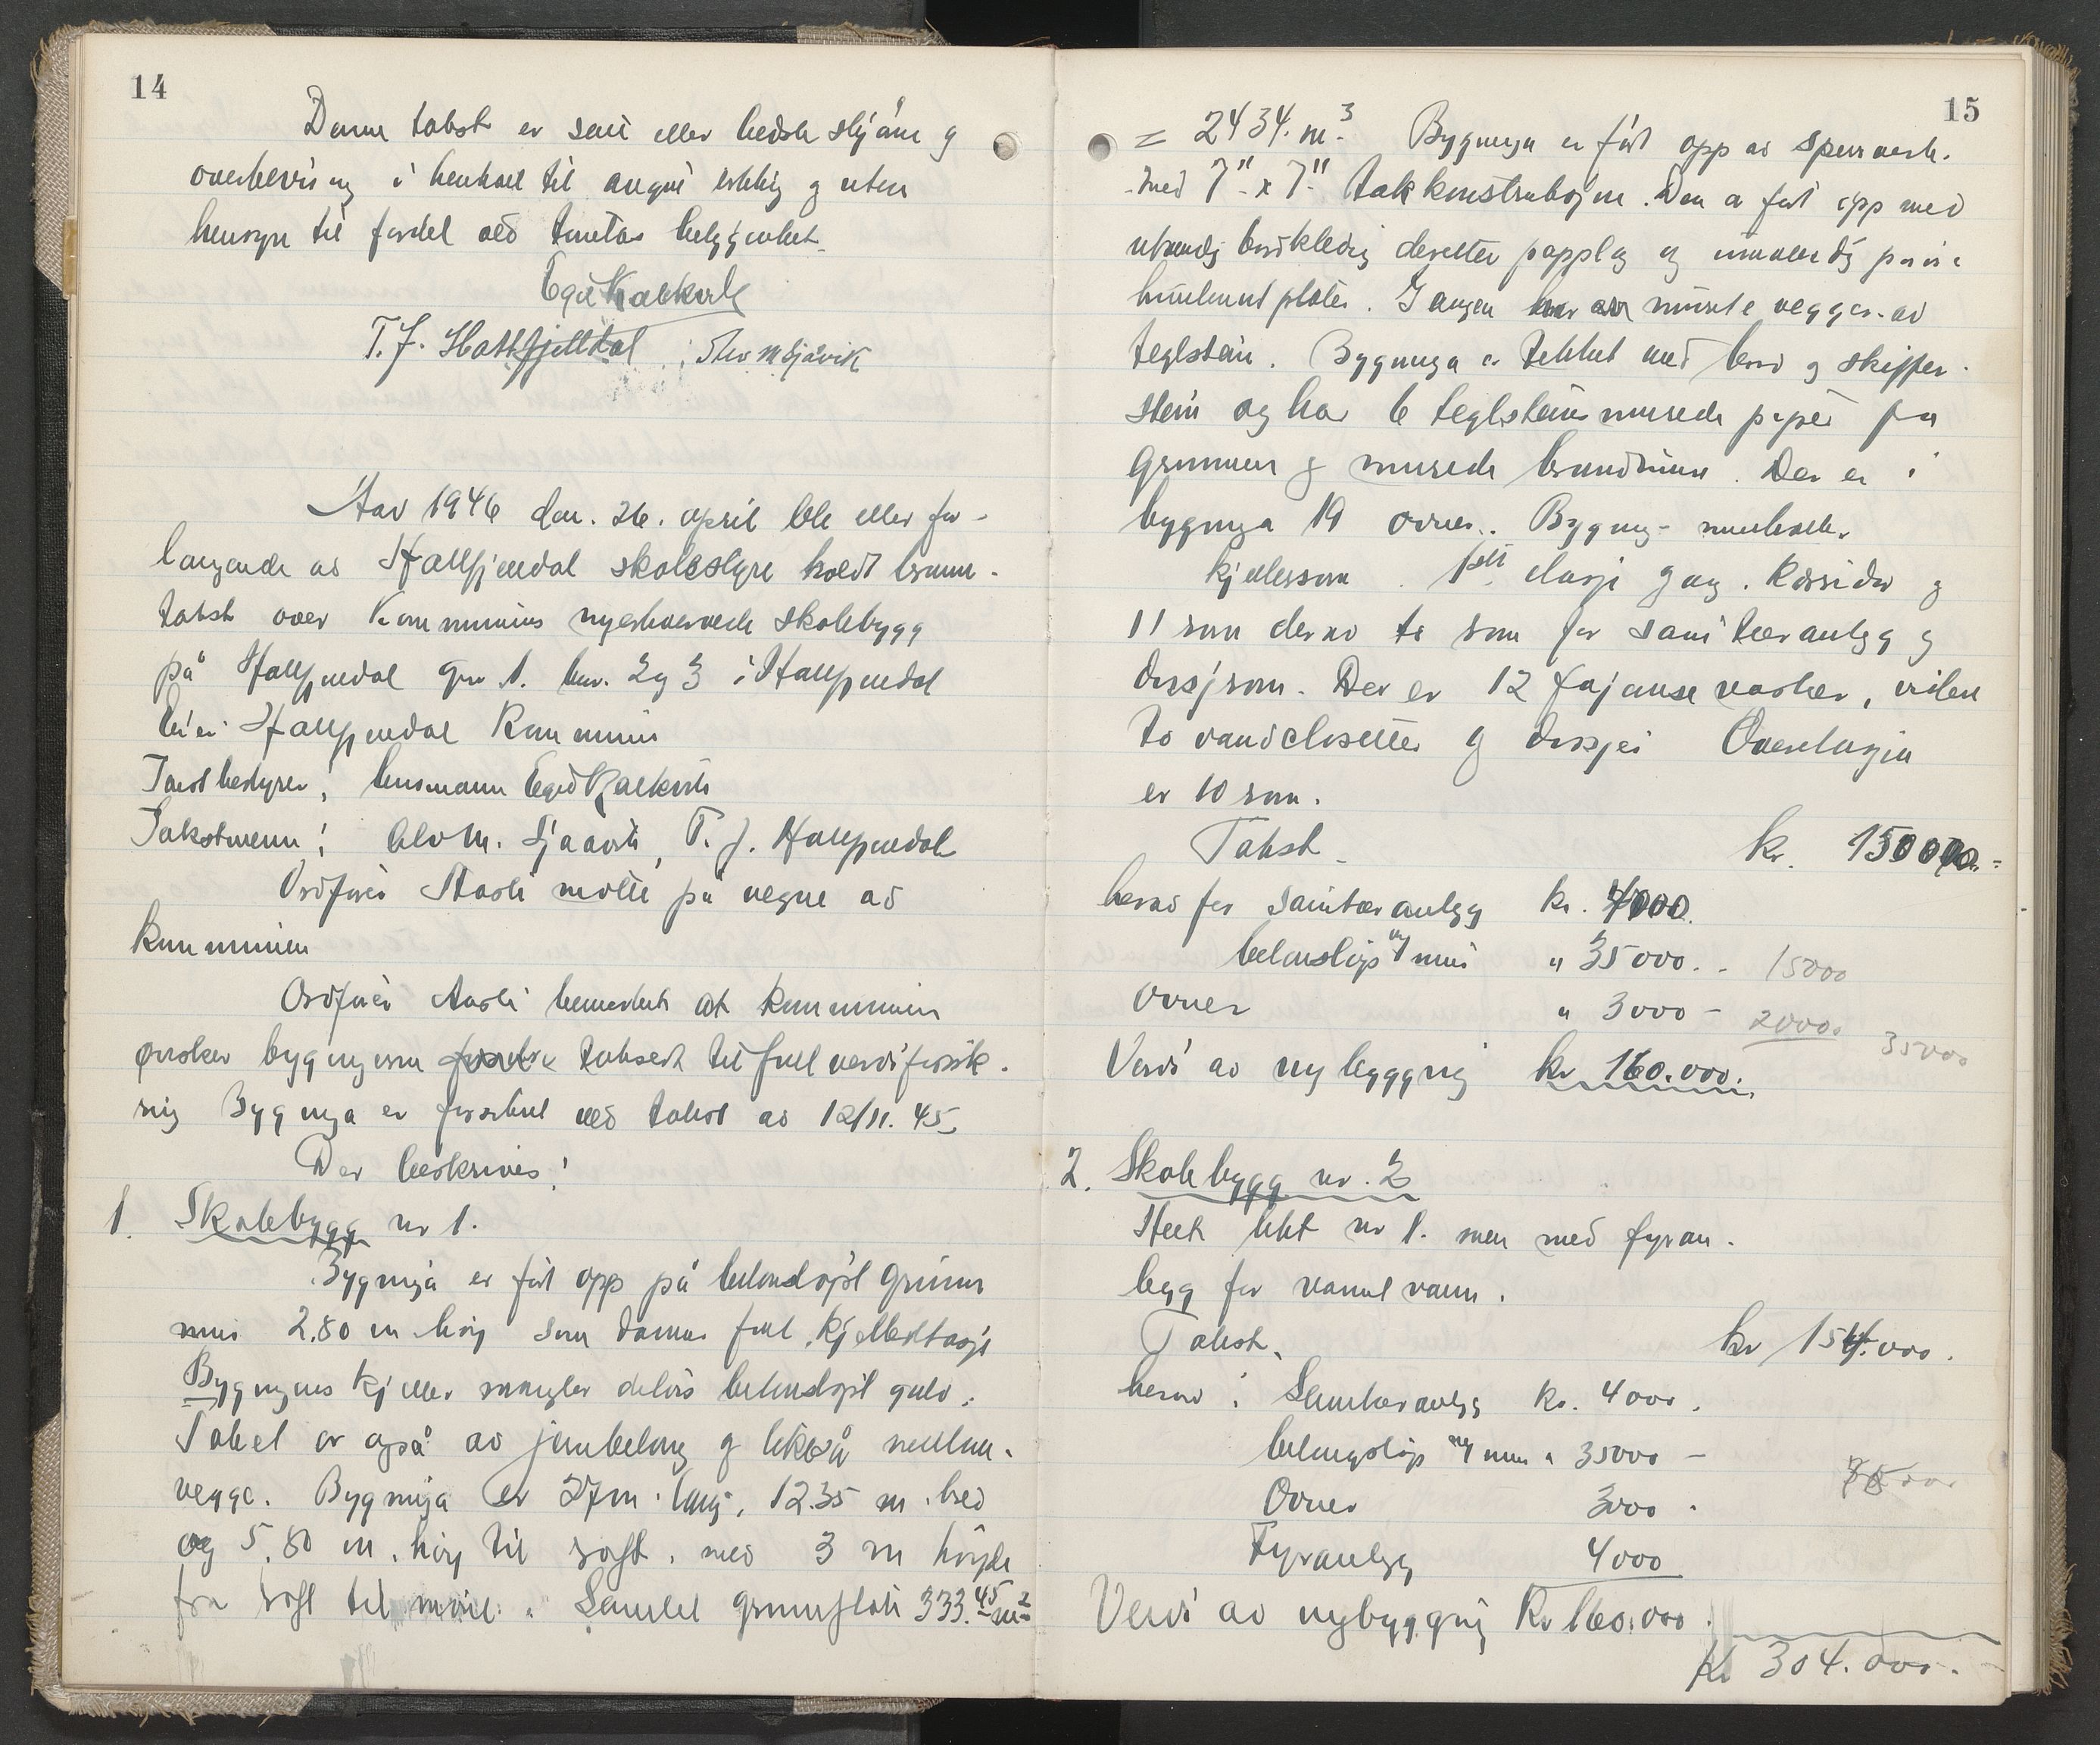 14
Denne takst er satt etter bedste skjønn og
overbevisning i henhold til avgitt erklæring og uten
hensyn til fordel ved tomtas beliggenhet.
Egil Kalkvik
T. J. Hattfjelldal
Aar 1946 den. 26. april ble etter for-
langende av Hattfjelldal skolestyre holdt brann-
takst over Kommunens nyerhvervede skolebygg
på Hattfjelldal gnr 1. bnr. 2 og 3 i Hattfjelldal
Eier Hattfjelldal Kommune
Takstbestyrer: lensmann Egil Kalkvik
Takstmenn: T. J. Hattfjelldal
Ordfører Aasli møtte på vegne av
Kommunen
Ordfører Aasli bemerket at Kommunen
ønsker bygningene taksert til full verdiforsik-
ring Bygninga er forsikret ved takst av 12/11. 45.
Der beskrives!
1. Skolebygg nr 1.
Bygninga er ført opp på betongstøpt grunn
mur 2.80 m høy som danner full kjelleretasje
Bygningens kjeller mangler delvis betongstøpt gulv.
Taket er også av jernbetong og likeså mellem-
vegge. Bygninga er 27 m. lang, 12.35 m. bred
og 5.80 m. høy til raft. med 3 m høyde
fra raft til møne. Samlet grunnflate 333.45 m2
15
= 2434. m3 Bygninga er ført opp av sperreverk.
med 7" x 7" takkonstruksjon. Den er ført opp med
utvendig bordkledning deretter papplag og innvendig
huntonit plater. I gangen er murte vegger av
teglstein. Bygninga er tekket med bord og skiffer-
stein og har 6 teglsteins murede piper fra
grunnen og murede brandmure. Der er i
bygninga 19 ovner. Bygning inneholder
kjellerrom. 1ste etasje gang. Korridor og
11 rom derav to rom for sanitæranlegg og
dusjrom. Der er 12 fajanse vasker, videre
to vandclosetter og dusjer Overetasjen
er 10 rom.
Takst kr. 150000.-
herav for sanitæranlegg kr. 4000.
betongstøp og mur " 35000.- 15000
Ovner " 3000 - 20000 35000
Verdi av nybygging kr 160.000.
2. Skolebygg nr. 2
Helt likt nr 1. men med fyran-
legg for varmt vann.
Takst. kr 154.000.
herav i Sanitæranlegg kr. 4000.
betongstøp og mur " 35000 -
Ovner 3000.
Fyranlegg 4000
Verdi av nybygging Kr 160.000.
Kr 304.000.